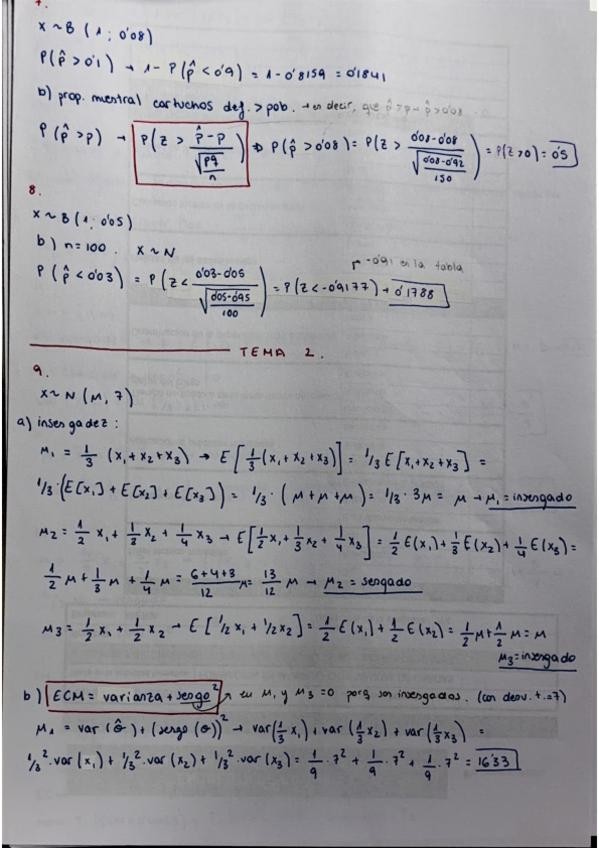 7.
X ~ B (1; 0'08)
P(p̂ > 0'1) → 1 - P(p̂ < 0'9) = 1 - 0'8159 = 0'1841
b) prop. muestral cartuchos def. > pob. → es decir, que p̂ > p → p̂ > 0'08
P(p̂ > p) → P(Z > (p̂ - p) / √(pq/n)) ⇒ P(p̂ > 0'08) = P(Z > (0'08 - 0'08) / √(0'08·0'92/150)) = P(Z > 0) = 0'5
8.
X ~ B (1; 0'05)
b) n = 100. X ~ N
→ -0'91 en la tabla
P(p̂ < 0'03) = P(Z < (0'03 - 0'05) / √(0'05·0'95/100)) = P(Z < -0'9177) → 0'1788
TEMA 2.
9.
X ~ N (μ, 7)
a) insesgadez:
μ₁ = 1/3 (x₁ + x₂ + x₃) → E[1/3 (x₁ + x₂ + x₃)] = 1/3 E[x₁ + x₂ + x₃] =
1/3 · (E[x₁] + E[x₂] + E[x₃]) = 1/3 · (μ + μ + μ) = 1/3 · 3μ = μ → μ₁ = insesgado
μ₂ = 1/2 x₁ + 1/3 x₂ + 1/4 x₃ → E[1/2 x₁ + 1/3 x₂ + 1/4 x₃] = 1/2 E(x₁) + 1/3 E(x₂) + 1/4 E(x₃) =
1/2 μ + 1/3 μ + 1/4 μ = (6+4+3)/12 μ = 13/12 μ → μ₂ = sesgado
μ₃ = 1/2 x₁ + 1/2 x₂ → E[1/2 x₁ + 1/2 x₂] = 1/2 E(x₁) + 1/2 E(x₂) = 1/2 μ + 1/2 μ = μ
μ₃ = insesgado
b) ECM = varianza + sesgo² → en μ₁ y μ₃ = 0 porq son insesgados. (con desv. t. = 7)
μ₁ = var(θ̂) + (sesgo(θ))² → var(1/3 x₁) + var(1/3 x₂) + var(1/3 x₃) =
1/3² · var(x₁) + 1/3² · var(x₂) + 1/3² · var(x₃) = 1/9 · 7² + 1/9 · 7² + 1/9 · 7² = 16'33